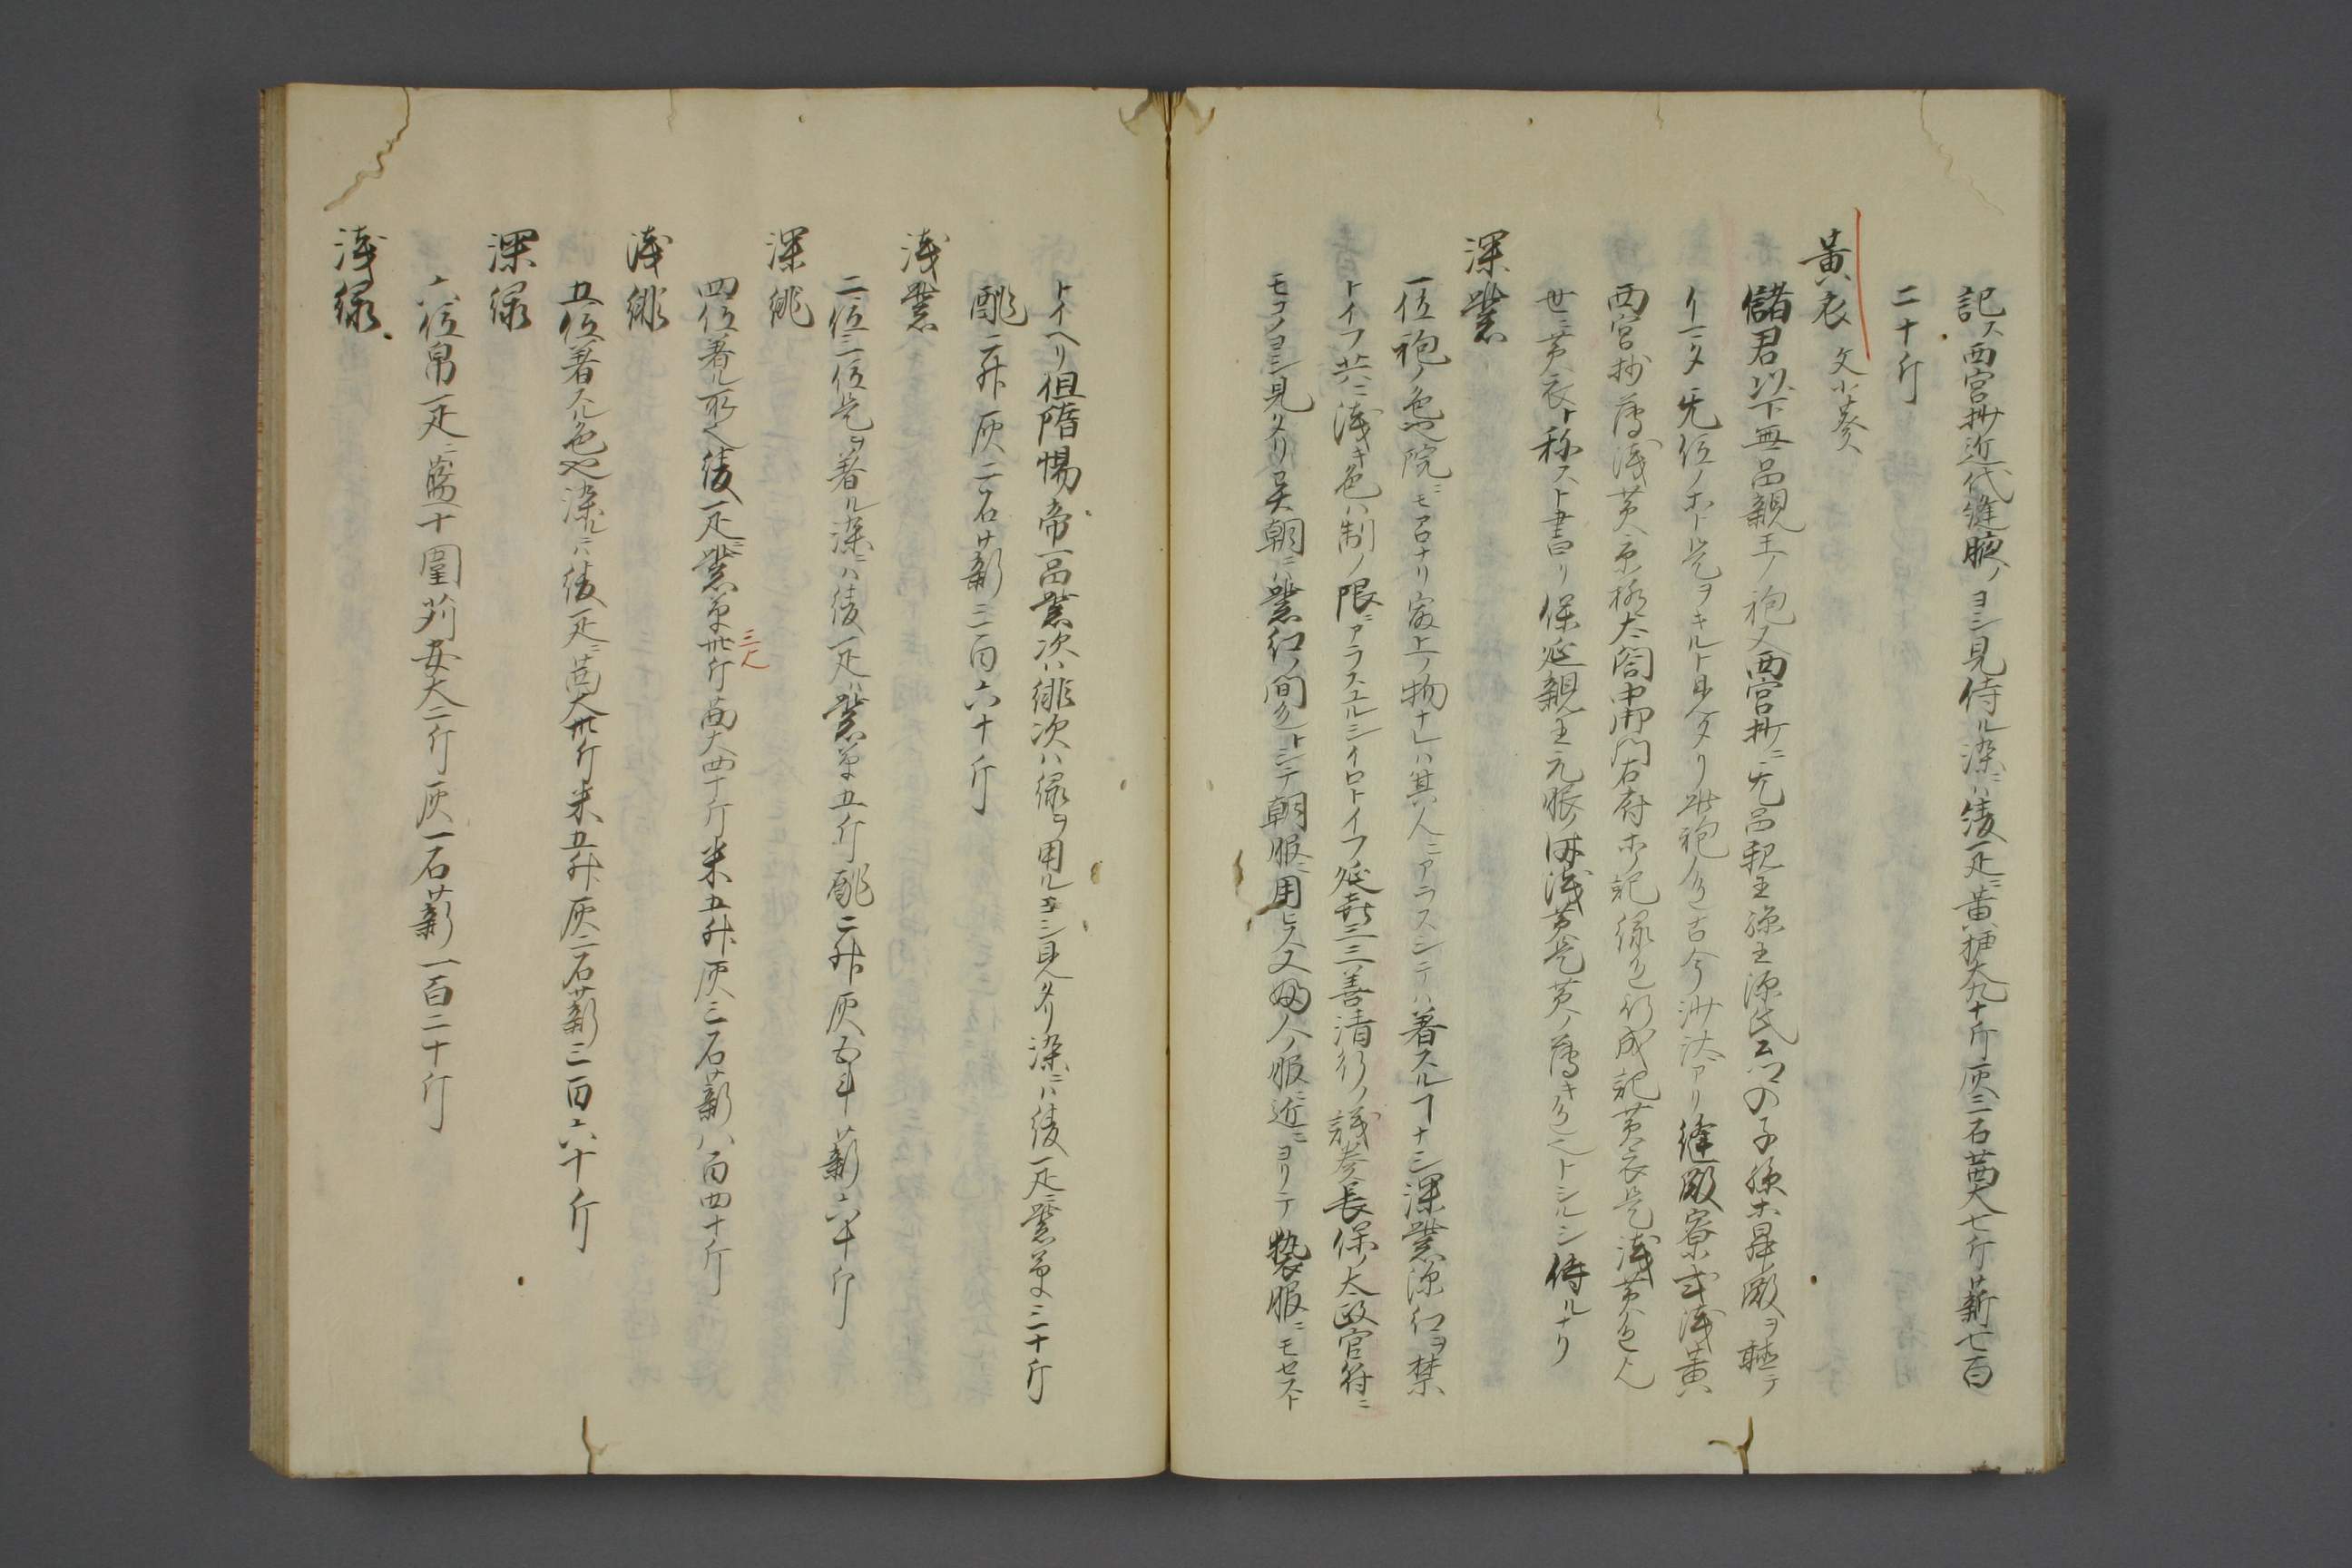 記ス西宮抄近代縫腋ノヨシ見侍ル染ニハ綾一疋ニ黄櫨大九十斤灰三石茜大七斤薪七百
二十斤
黄衣 文小葵
儲君以下無品親王ノ袍又西宮抄ニ无品親王孫王源氏公卿の子孫ホ昇殿ヲ聴テ
イマタ无位ノホト是ヲキルト見ヘタリ此袍色古今沙汰アリ縫殿寮式浅黄
西宮抄薄浅黄京極太閤中御門右府ホノ記緑色行成記黄衣是浅黄色也
世ニ黄衣ト称スト書リ保延親王元服ノ時浅黄是黄ノ薄キ色也トシルシ侍ルナリ
深紫
一位袍ノ色也院ニモアロナリ最上ノ物ナレハ其人ニアラスシテハ著スルヿナシ深紫深紅ヲ禁
トイフ共ニ浅キ色ハ制ノ限ニアラスユルシイロトイフ延喜三善清行ノ議奏長保ノ太政官符ニ
モコノヨシ見タリ吴朝ニハ紫紅ノ間色トシテ朝服ニ用ヒス又婦人ノ服ニ近ニヨリテ褻服ニモセスト
トイヘリ但隋煬帝一品紫次ハ緋次ハ緑ヲ用ルヨシ見ヘタリ染ニハ綾一疋ニ紫草三十斤
酢二升灰二石薪三百六十斤
浅紫
二位三位是ヲ著ル染ニハ綾一疋ニ紫草五斤酢二升灰五斗薪六十斤
深緋
四位著ル所也綾一疋ニ紫草卅斤茜大四十斤米五升灰三石薪八百四十斤
浅緋
五位著スル色也染ルニハ綾一疋ニ茜大卅斤米五升灰二石薪三百六十斤
深緑
六位帛一疋ニ藍十圍苅安大二斤灰一石薪一百二十斤
浅緑